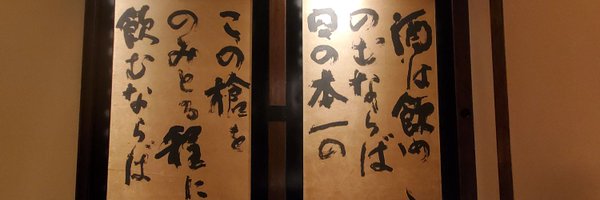 酒は飲め
のむならば
日の本一の
この槍を
のみとる程に
飲むならば